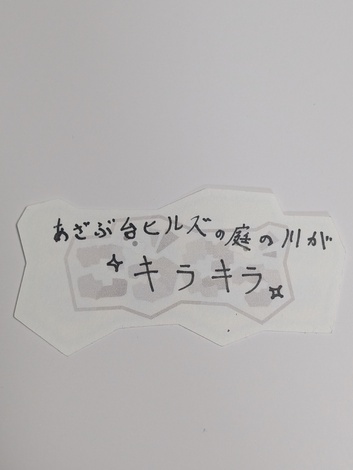 あざぶ台ヒルズの庭の川が
キラキラ